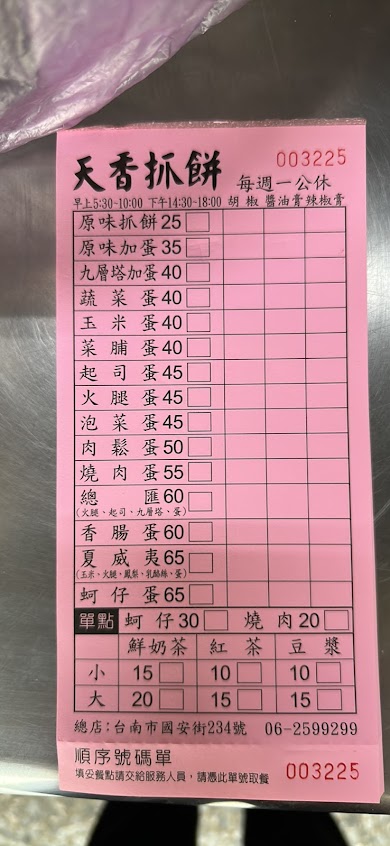 天香抓餅 003225
每週一公休
早上5:30-10:00 下午14:30-18:00 胡椒 醬油膏 辣椒膏
原味抓餅25
原味加蛋35
九層塔加蛋40
蔬菜蛋40
玉米蛋40
菜脯蛋40
起司蛋45
火腿蛋45
泡菜蛋45
肉鬆蛋50
燒肉蛋55
總匯60
(火腿、起司、九層塔、蛋)
香腸蛋60
夏威夷65
(玉米、火腿、鳳梨、乳酪絲、蛋)
蚵仔蛋65
單點 蚵仔30 燒肉20
鮮奶茶 紅茶 豆漿
小 15 10 10
大 20 15 15
總店:台南市國安街234號 06-2599299
順序號碼單
填妥餐點請交給服務人員,請憑此單號取餐 003225